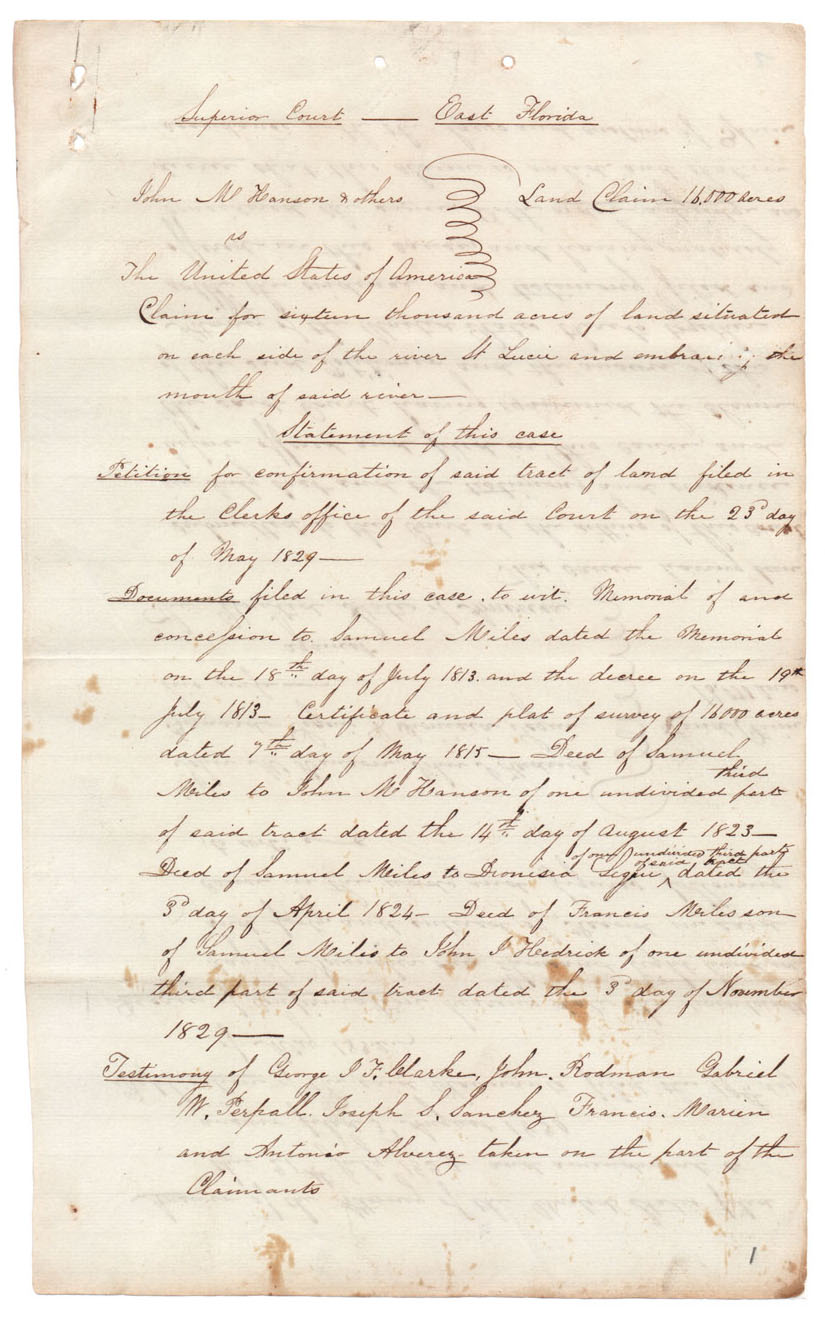 Superior Court — East Florida
John M Hanson & others Land Claim 16,000 acres
vs
The United States of America
Claim for sixteen thousand acres of land situated
on each side of the river St Lucie and embracing the
mouth of said river —
Statement of this case
Petition for confirmation of said tract of land filed in
the Clerks office of the said Court on the 23d day
of May 1829 —
Documents filed in this case, to wit. Memorial of and
concession to Samuel Miles dated the Memorial
on the 18th day of July 1813. and the decree on the 19th
July 1813 – Certificate and plat of survey of 16000 acres
dated 7th day of May 1815 — Deed of Samuel
Miles to John M Hanson of one undivided third part
of said tract dated the 14th day of August 1823 —
Deed of Samuel Miles to Dionisia Segui of one undivided third part of said tract dated the
3d day of April 1824 – Deed of Francis Miles son
of Samuel Miles to John J Hedrick of one undivided
third part of said tract dated the 3d day of November
1829 —
Testimony of George J F. Clarke, John. Rodman Gabriel
W. Perpall. Joseph S. Sanchez Francis. Marien
and Antonio Alverez taken on the part of the
Claimants
1